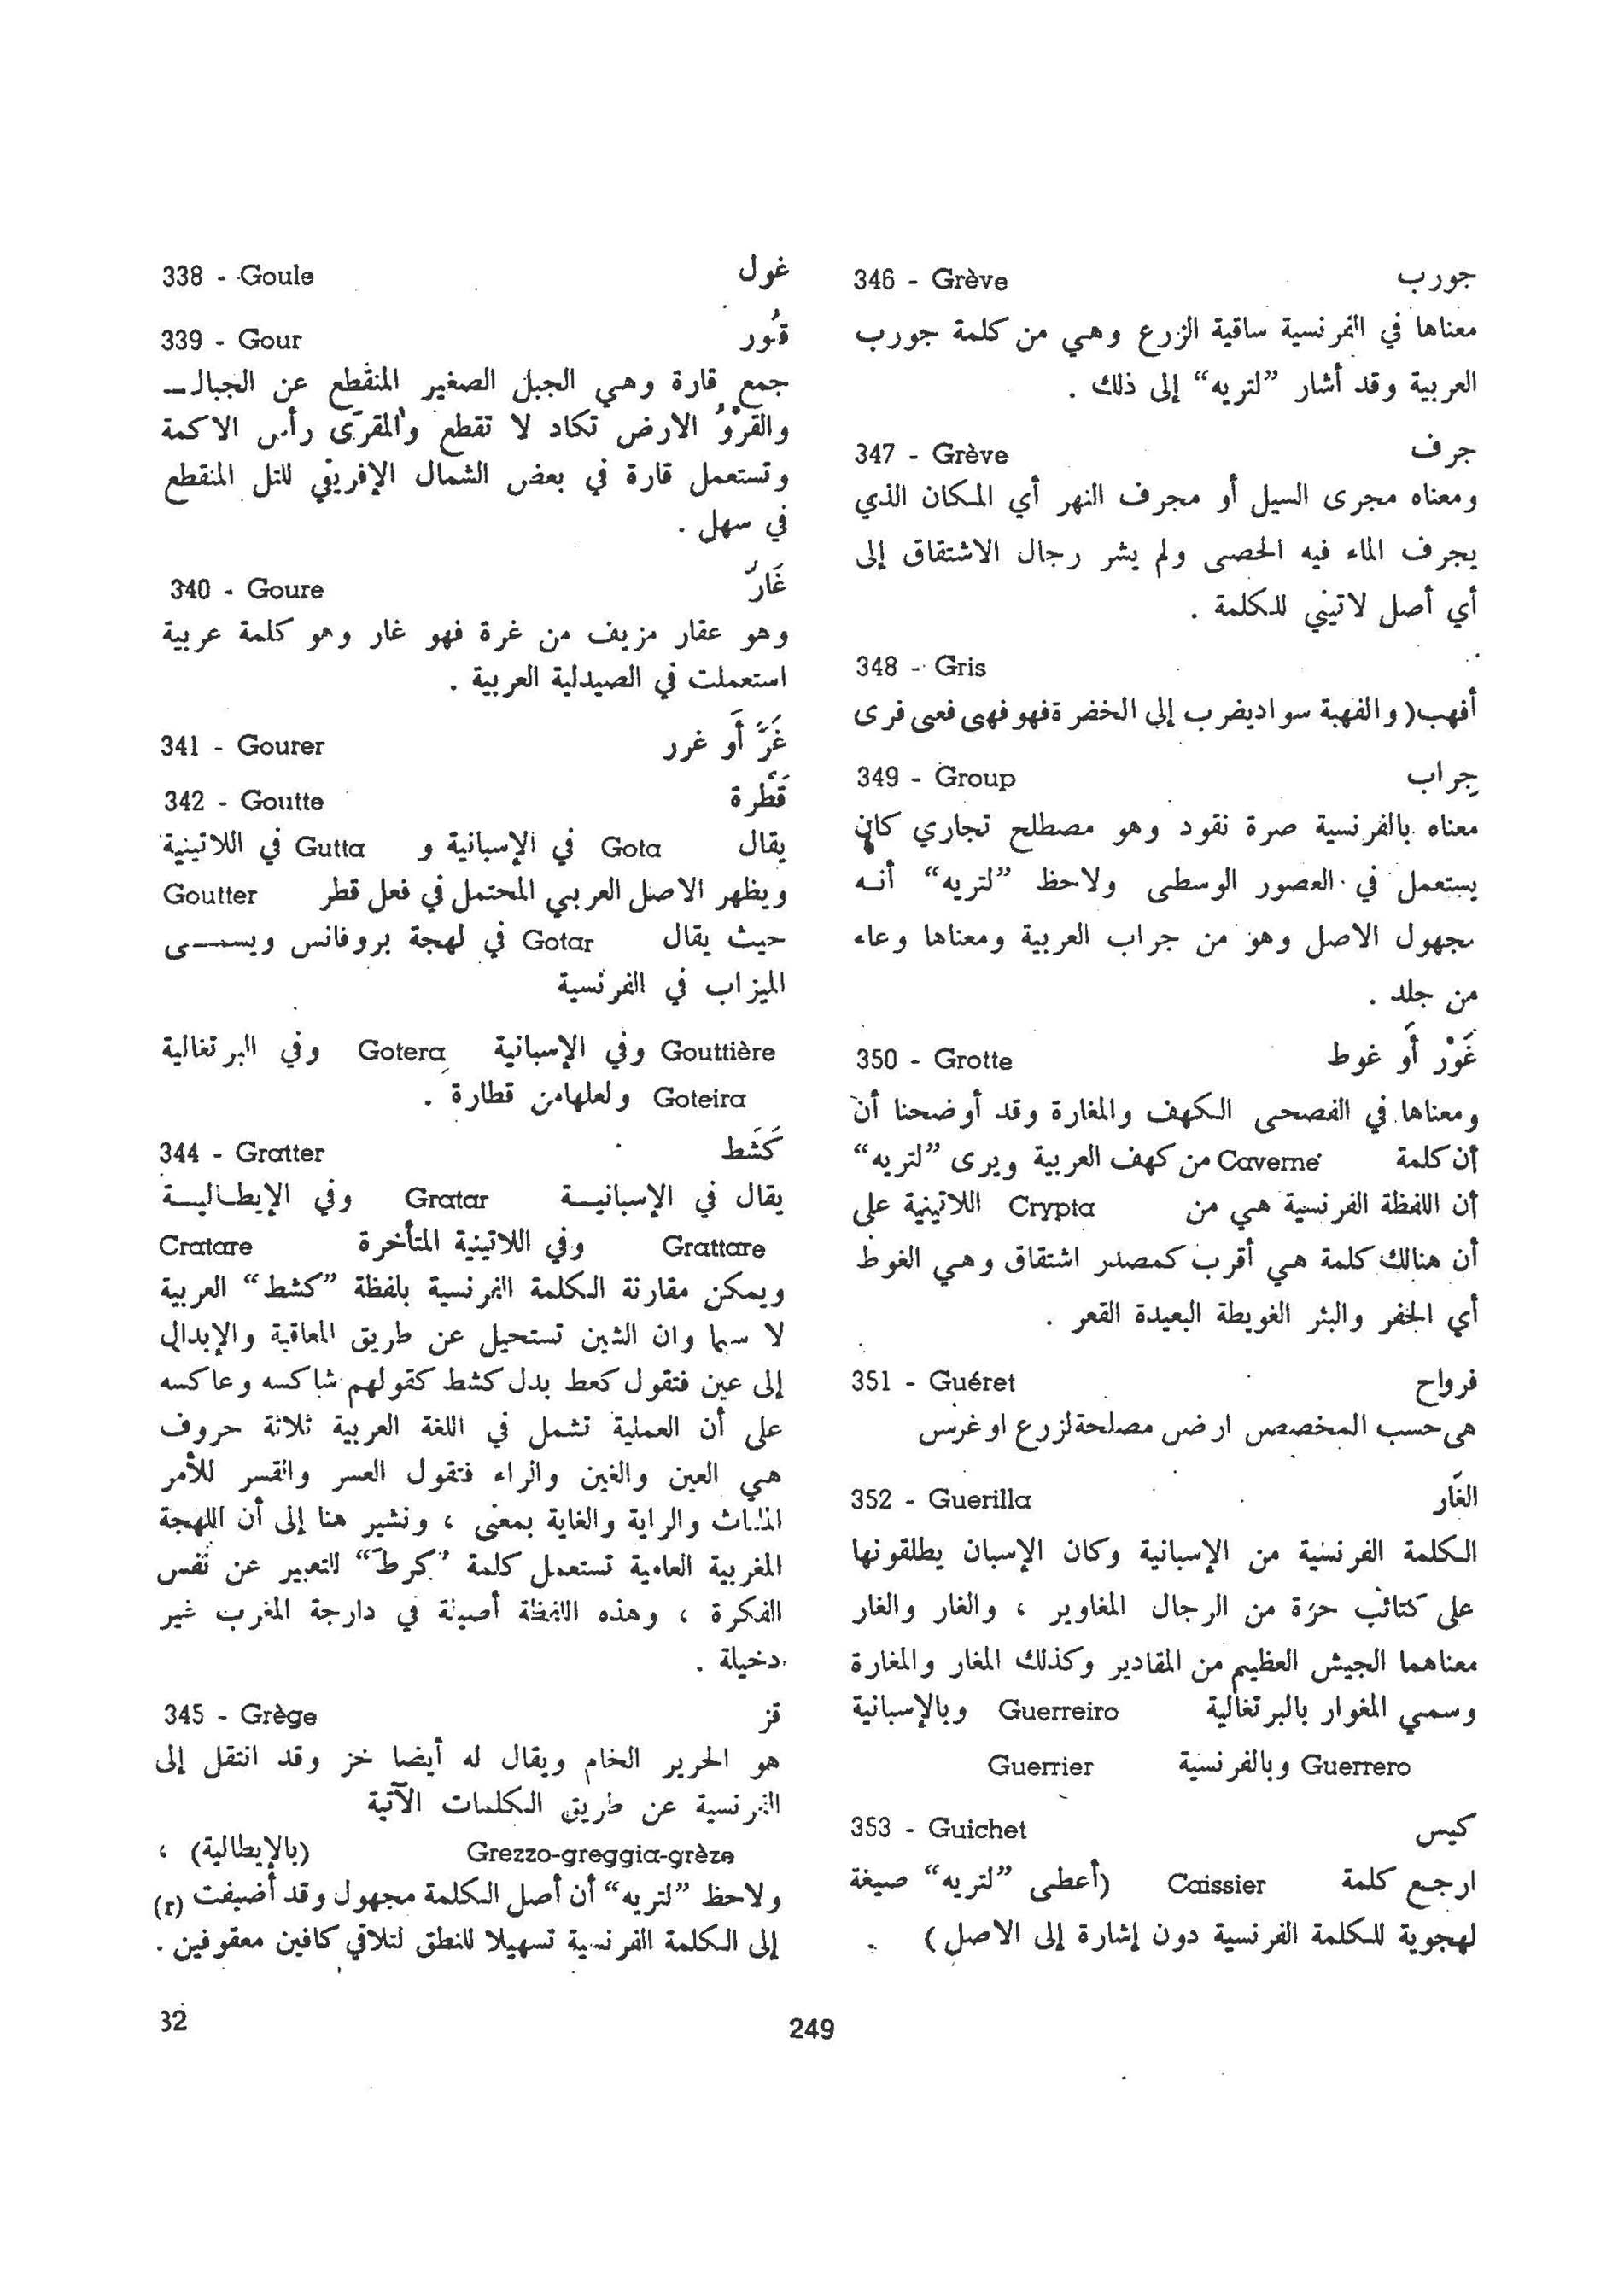 338 - Goule غول
339 - Gour قُور
جمع قارة وهي الجبل الصغير المنقطع عن الجبال ــ
والقرْوُ الارض تكاد لا تقطع والمقرَى رأس الاكمة
وتستعمل قارة في بعض الشمال الإفريقي للتل المنقطع
في سهل .
340 - Goure غَارّ
وهو عقار مزيف من غرة فهو غار وهو كلمة عربية
استعملت في الصيدلية العربية .
341 - Gourer غَرَّ أَو غرر
342 - Goutte قَطْرة
يقال Gota في الإسبانية و Gutta في اللاتينية
ويظهر الاصل العربي المحتمل في فعل قطر Goutter
حيث يقال Gotar في لهجة بروفانس ويسمــى
الميزاب في الفرنسية
Gouttière وفي الإسبانية Gotera وفي البرتغالية
Goteira ولعلهامن قطارة .
344 - Gratter كَشَط
يقال في الإسبانيــة Gratar وفي الإيطـاليــة
Grattare وفي اللاتينية المتأخرة Cratare
ويمكن مقارنة الكلمة الفرنسية بلفظة ”كشط“ العربية
لا سيما وان الشين تستحيل عن طريق المعاقبة والإبدال
إلى عين فتقول كعط بدل كشط كقولهم شاكسه وعاكسه
على أن العملية تشمل في اللغة العربية ثلاثة حروف
هي العين والغين والراء فتقول العسر والقسر للأمر
الملتاث والراية والغاية بمعنى ، ونشير هنا إلى أن اللهجة
المغربية العامية تستعمل كلمة ”كرط“ للتعبير عن نفس
الفكرة ، وهذه اللفظة أصيلة في دارجة المغرب غير
دخيلة .
345 - Grège قز
هو الحرير الخام ويقال له أيضا خز وقد انتقل إلى
الفرنسية عن طريق الكلمات الآتية
Grezzo-greggia-grèze (بالإيطالية) ،
ولاحظ ”لتريه“ أن أصل الكلمة مجهول وقد أضيفت (r)
إلى الكلمة الفرنسية تسهيلا للنطق لتلاقي كافين معقوفين .
346 - Grève جورب
معناها في الفرنسية ساقية الزرع وهي من كلمة جورب
العربية وقد أشار ”لتريه“ إلى ذلك .
347 - Grève جرف
ومعناه مجرى السيل أو مجرف النهر أي المكان الذي
يجرف الماء فيه الحصى ولم يشر رجال الاشتقاق إلى
أي أصل لاتيني للكلمة .
348 - Gris
أفهب( والفهبة سواديضرب إلى الخضرةفهو فهى فعى فرى
349 - Group جِراب
معناه بالفرنسية صرة نقود وهو مصطلح تجاري كان
يستعمل في العصور الوسطى ولاحظ ”لتريه“ أنـه
مجهول الاصل وهو من جراب العربية ومعناها وعاء
من جلد .
350 - Grotte غَوْر أَو غوط
ومعناها في الفصحى الكهف والمغارة وقد أوضحنا أن
أن كلمة Caverne من كهف العربية ويرى ”لتريه“
أن اللفظة الفرنسية هي من Crypta اللاتينية على
أن هنالك كلمة هي أقرب كمصدر اشتقاق وهي الغوط
أي الحفر والبئر الغويطة البعيدة القعر .
351 - Guéret فرواح
هى حسب المخصص ارض مصلحةلزرع او غرس
352 - Guerilla الغَار
الكلمة الفرنسية من الإسبانية وكان الإسبان يطلقونها
على كتائب حرة من الرجال المغاوير ، والغار والغار
معناهما الجيش العظيم من المقادير وكذلك المغار والمغارة
وسمي المغوار بالبرتغالية Guerreiro وبالإسبانية
Guerrero وبالفرنسية Guerrier
353 - Guichet كيس
ارجـع كلمة Caissier (أعطى ”لتريه“ صيغة
لهجوية للكلمة الفرنسية دون إشارة إلى الاصل) .
32
249